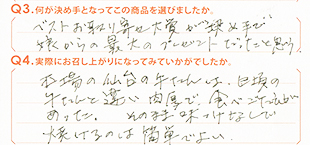 Q3.何が決め手となってこの商品を選びましたか。
ベストお取り寄せ大賞が決め手で
娘からの最大のプレゼントだったと思う。
Q4.実際にお召し上がりになってみていかがでしたか。
本場の仙台の牛たんは、日頃の
牛たんと違い肉厚で、食べごたえが
あった。そのまま味つけなしで
焼けるのは簡単でよい。